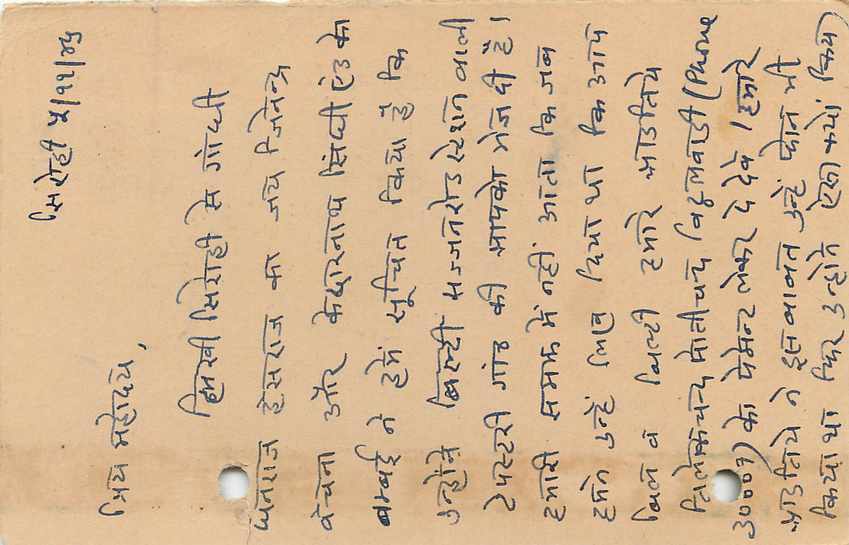 सिरोही ५/११/४५
प्रिय महोदय,
लिखी सिरोही से गांधी
धनराज हंसराज का जय जिनेन्द्र
वंचना और केदारनाथ सिंघी एंड को
बम्बई ने हमें सूचित किया है कि
उन्होने बिल्टी सज्जनरोड स्टेशन वाली
टपस्टरी गांठ की आपको भेज दी है।
हमारी समझ में नहीं आता कि जब
हमने उन्हें लिख दिया था कि आप
बिल व बिल्टी हमारे आडतिये
तिलोकचन्द मोतीचन्द विठ्ठलवाडी (Phone
30007) को पेमेन्ट लेकर दे देवे। हमारे
आडतिये ने इस बाबत उन्हें फोन भी
किया था फिर उन्होने ऐसा क्यों किया